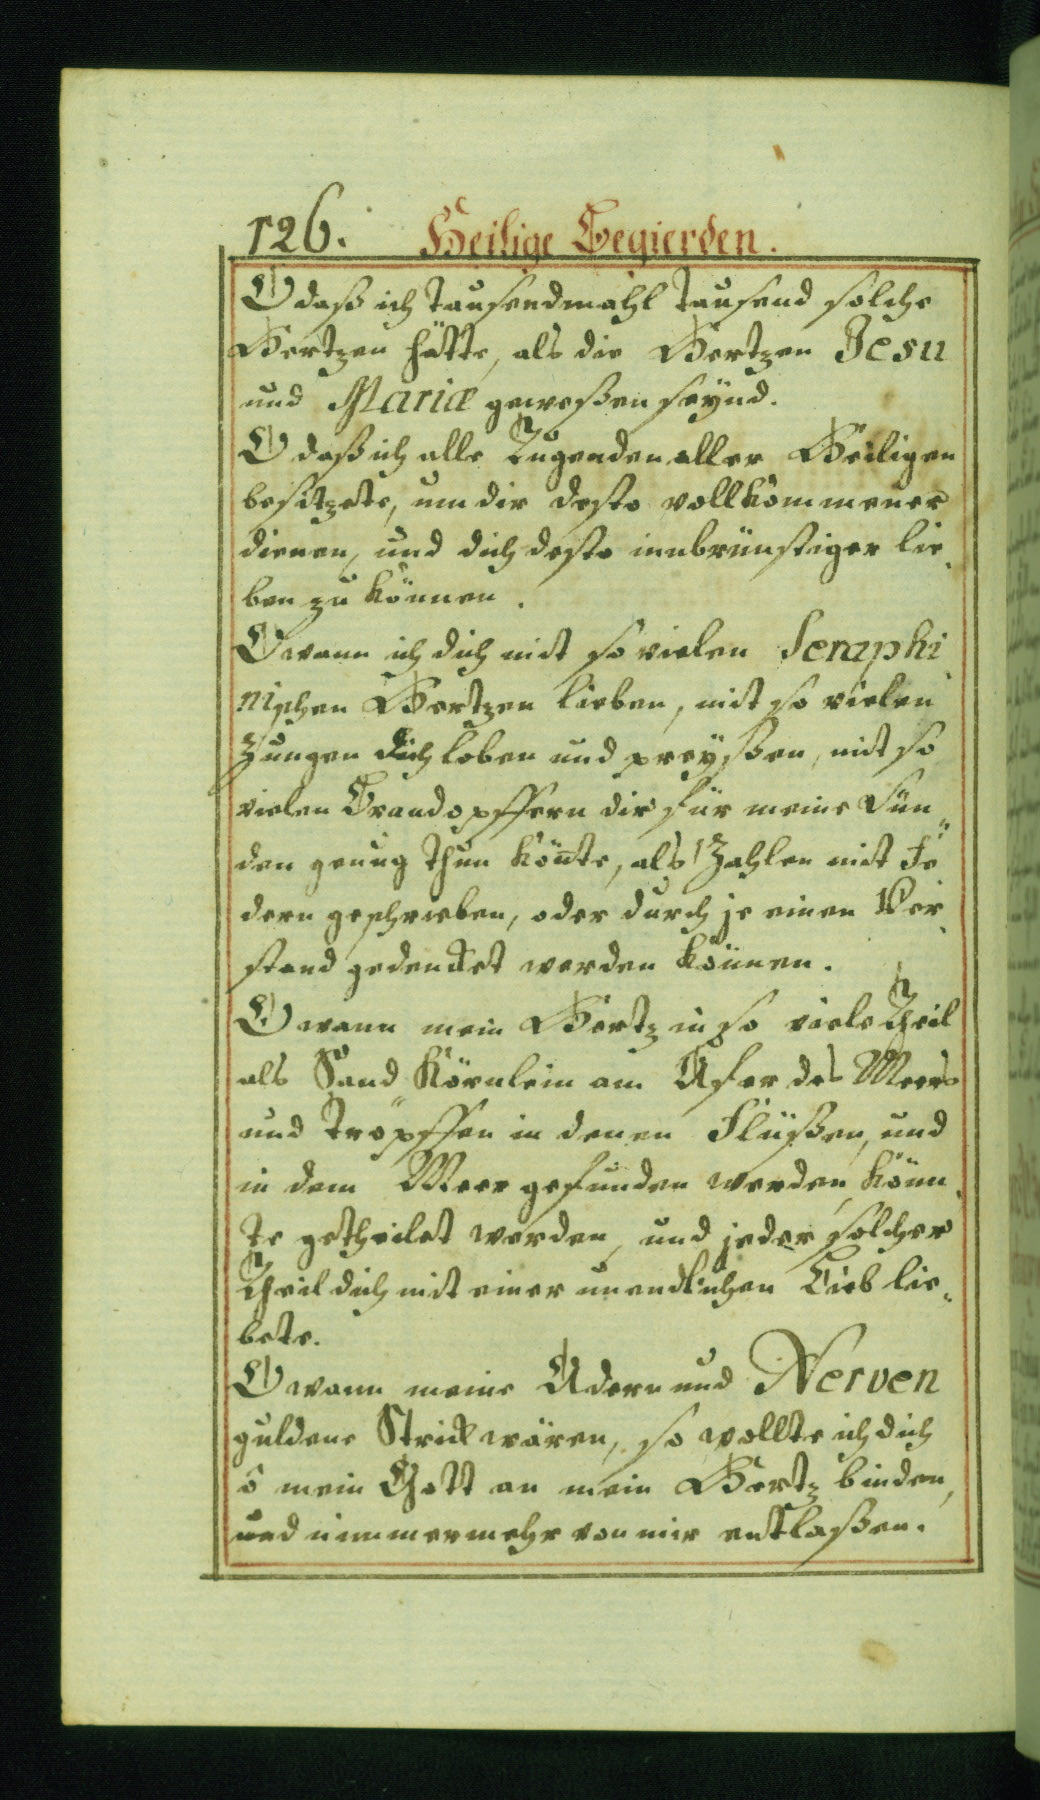 126. Heilige Begierden.
O daß ich tausendmahl tausend solche
Hertzen hätte, als die Hertzen Jesu
und Mariæ geweßen seynd.
O daß ich alle Tugenden aller Heiligen
besitzete, um dir desto vollkommener
dienen, und dich desto innbrünstiger lie
ben zu können.
O wann ich dich mit so vielen Seraphi
nischen Hertzen lieben, mit so vielen
Zungen dich loben und preyßen, mit so
vielen Brandopffern dir für meine Sün„
den genug thun könte, als Zahlen mit Fe
dern geschrieben, oder durch je einen Ver
stand gedencket werden können.
O wann mein Hertz in so viele Theil
als Sand Körnlein am Ufer des Meers
und Tröpffen in denen Flüßen, und
in dem Meer gefunden werden, könn
te getheilet werden, und jeder solcher
Theil dich mit einer unendlichen Lieb lie„
bete.
O wann meine Adern und Nerven
guldene Strick wären, so wollte ich dich
ô mein Gott an mein Hertz binden,
und nimmermehr von mir entlaßen.